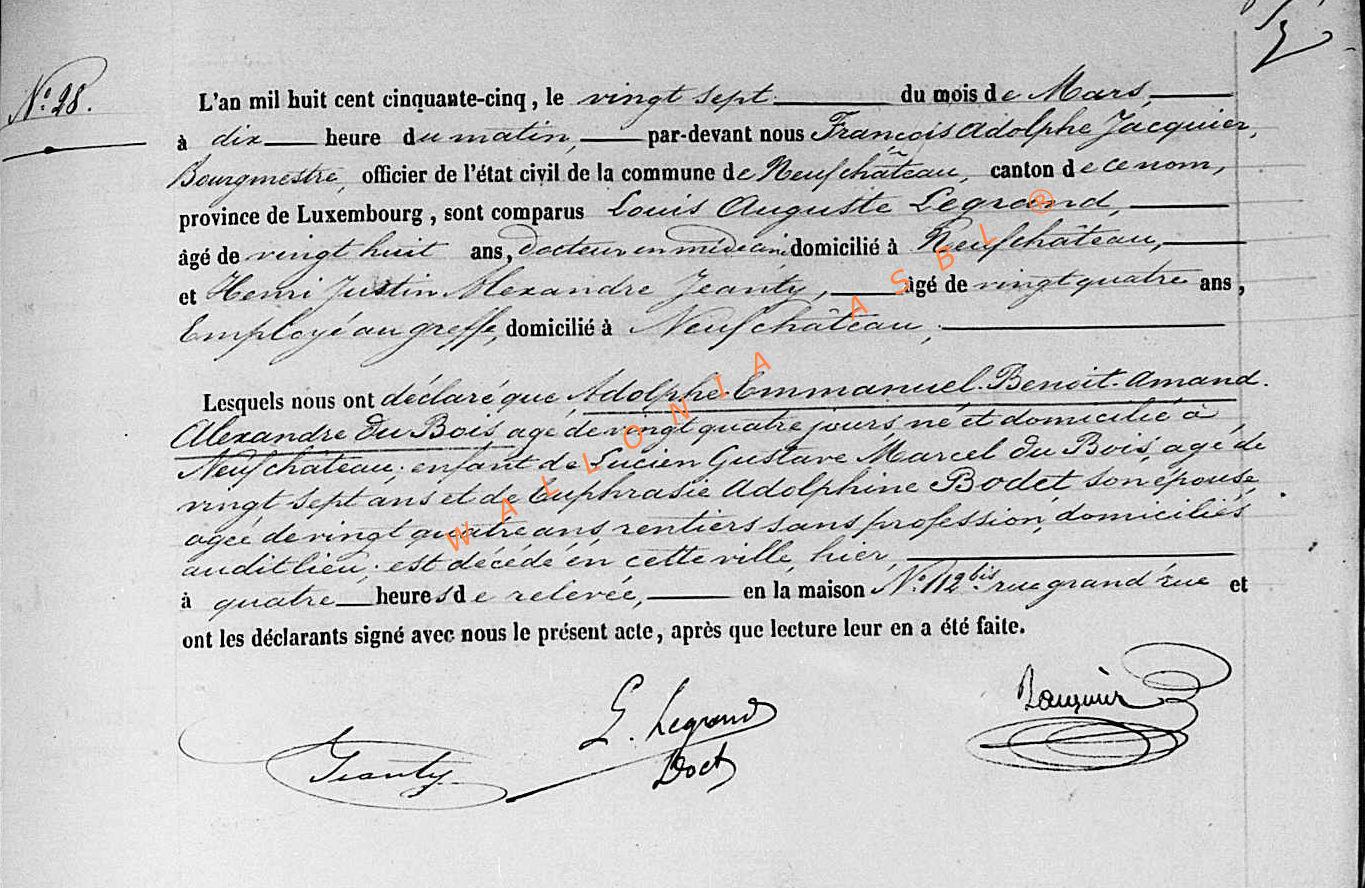 N° 28.
L'an mil huit cent cinquante-cinq, le vingt sept du mois de Mars,
à dix heure du matin, par-devant nous François Adolphe Jacquier,
Bourgmestre, officier de l'état civil de la commune de Neufchâteau, canton de ce nom,
province de Luxembourg, sont comparus Louis Auguste Legrand,
âgé de vingt huit ans, docteur en médecine domicilié à Neufchâteau,
et Henri Justin Alexandre Jeanty, âgé de vingt quatre ans,
Employé au greffe, domicilié à Neufchâteau,
Lesquels nous ont déclaré que Adolphe-Emmanuel-Benoit-Amand-
Alexandre Du Bois, agé de vingt quatre jours, né et domicilié à
Neufchâteau; enfant de Lucien Gustave Marcel du Bois, agé de
vingt sept ans et de Euphrasie Adolphine Bodet son épouse,
agée de vingt quatre ans rentiers sans profession, domiciliés
audit lieu; est décédé en cette ville, hier,
à quatre heures de relevée, en la maison N° 112 bis rue grand'rue et
ont les déclarants signé avec nous le présent acte, après que lecture leur en a été faite.
Jeanty
L. Legrand
Doct
Jacquier
WALLONIA ASBL ®